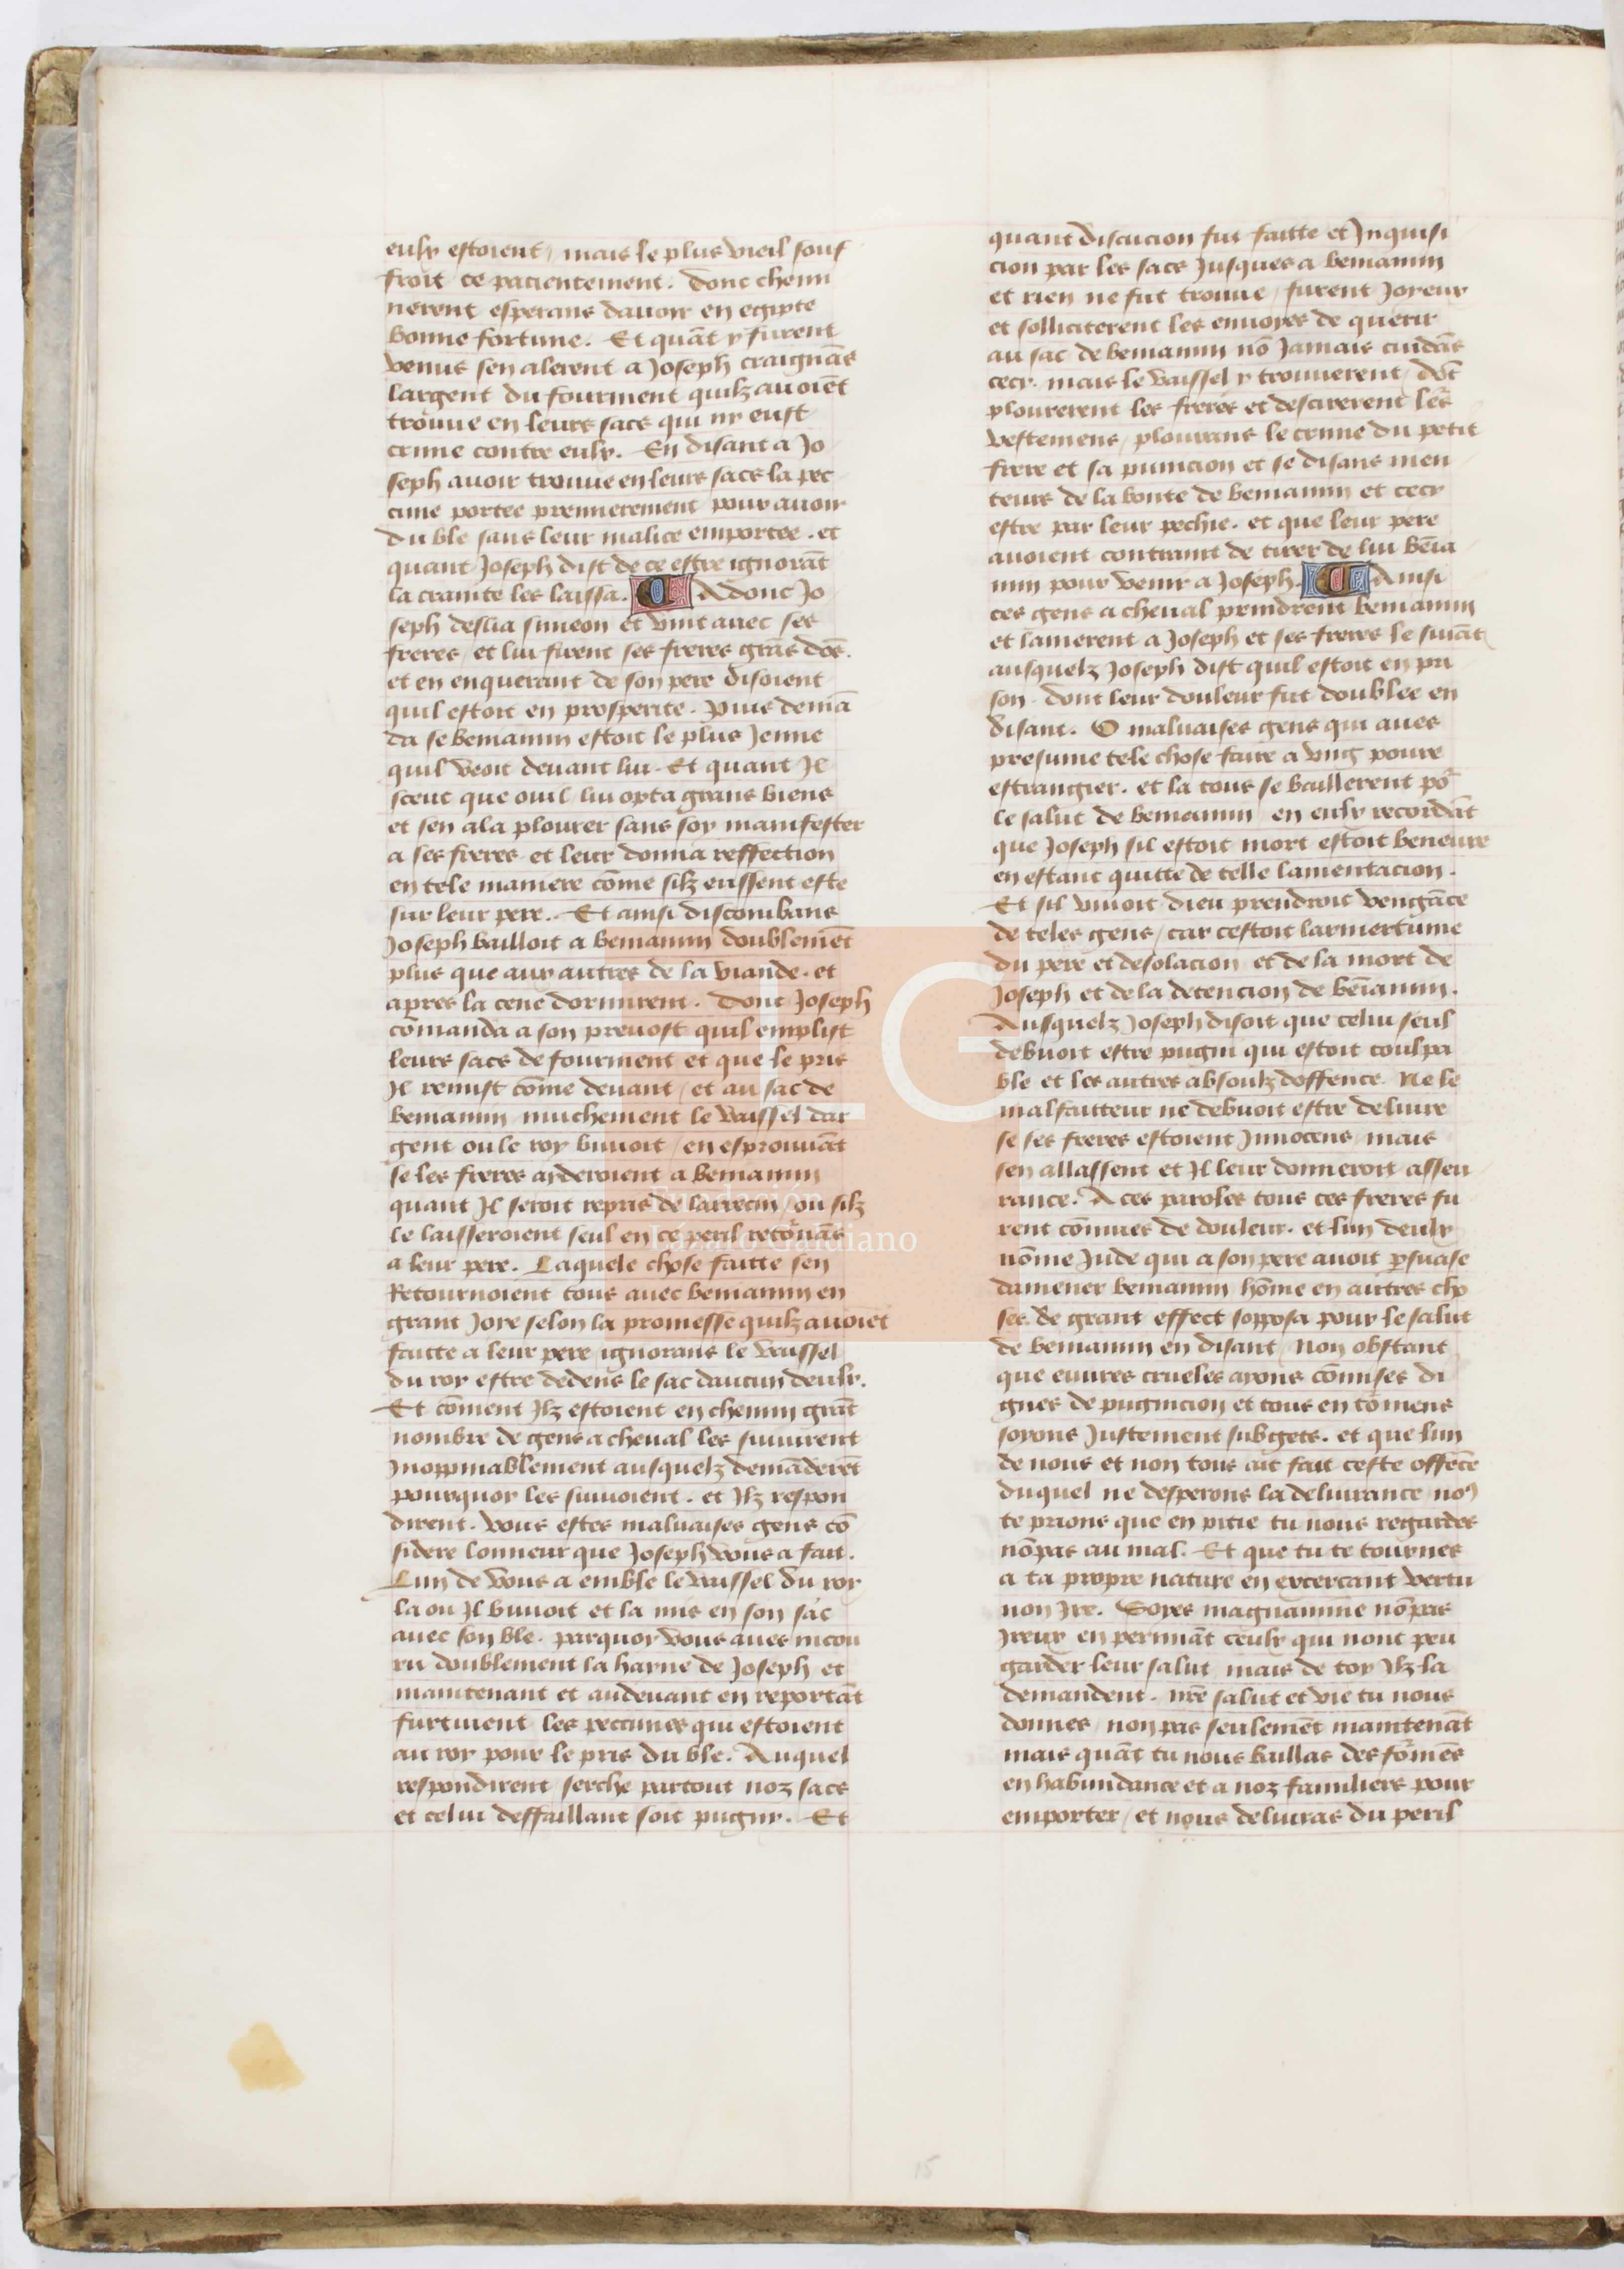 eulx estoient / mais le plus vieil souf
froit ce pacientement. Donc chemi
nerent esperans davoir en egipte
bonne fortune. Et quãt y furent
venus sen alerent a Joseph craignãs
largent du fourment quilz avoiẽt
trouve en leurs sacs qui ny eust
crime contre eulx. En disant a Jo
seph avoir trouve en leurs sacs la pec
cune portee premierement pour avoir
du ble sans leur malice emportee. et
quant Joseph dist de ce estre ignorãt
la crainte les laissa. Adonc Jo
seph deslia simeon et vint avec ses
freres / et lui firent ses freres grãs dõs.
et en enquerant de son pere disoient
quil estoit en prosperite. Puis demã
da se beniamin estoit le plus Jenne
quil veoit devant lui. Et quant Jl
sceut que ouil lui opta grans biens
et sen ala plourer sans soy manifester
a ses freres et leur donna reffection
en tele maniere cõme silz eussent este
sur leur pere. Et ainsi discombans
Joseph bailloit a beniamin doublemẽt
plus que aux autres de la viande. et
apres la cene dormirent. Donc Joseph
cõmanda a son prevost quil emplist
leurs sacs de fourment et que le pris
Jl remist cõme devant / et au sac de
beniamin muchement le vaissel dar
gent ou le roy buvoit / en esprouvãt
se les freres arderoient a beniamin
quant Jl seroit repris de larrecin / ou silz
le laisseroient seul en ce peril retõnãs
a leur pere. Laquele chose faitte sen
Retournoient tous avec beniamin en
grant Joye selon la promesse quilz avoiẽt
faitte a leur pere ignorans le vaissel
du roy estre dedens le sac daucun deulx.
Et cõment Jlz estoient en chemin grãt
nombre de gens a cheval les suivirent
Jnoppinablement ausquelz demãderẽt
pourquoy les suivoient. et Jlz respon
dirent. vous estes malvaises gens cõ
sidere lonneur que Joseph vous a fait.
Lun de vous a emble le vaissel du roy
la ou Jl buvoit et la mis en son sac
avec son ble. parquoy vous aves incou
ru doublement la hayne de Joseph et
maintenant et audevant en reportãt
furtivent les peccunes qui estoient
au roy pour le pris du ble. Auquel
respondirent / serche partout noz sacs
et celui deffaillant soit pugny. Et
quant discucion fut faitte et Jnquisi
cion par les sacs Jusques a beniamin
et rien ne fut trouve / furent Joyeux
et solliciterent les envoyes de querir
au sac de beniamin nõ Jamais cuidãs
cecy. mais le vaissel y trouverent / dõt
plourerent les freres et descirerent leˢ
vestemens / plourans le crime du petit
frere et sa punicion et se disans men
teurs de la bonte de beniamin et cecy
estre par leur pechie. et que leur pere
avoient contraint de tirer de lui bẽia
min pour venir a Joseph. Ainsi
ces gens a cheval prindrent beniamin
et lamerent a Joseph et ses freres le suiãt
ausquelz Joseph dist quil estoit en pri
son. dont leur douleur fut doublee en
disant. O malvaises gens qui aves
presume tele chose faire a ung povre
estrangier. et la tous se baillerent põ
le salut de beniamin en eulx recordãt
que Joseph sil estoit mort estoit beneure
en estant quitte de telle lamentacion.
Et sil vivoit dieu prendroit vengãce
de teles gens / car cestoit larmertume
du pere et desolacion et de la mort de
Joseph et de la detencion de bẽiamin.
Ausquelz Joseph disoit que celui seul
debvoit estre pugni qui estoit coulpa
ble et les autres absoulz doffence. Ne le
malfaitteur ne debvoit estre delivre
se ses freres estoient Jnnocens / mais
sen allassent et Jl leur donneroit asseu
rance. A ces paroles tous ces freres fu
rent cõmues de douleur. et lun deulx
nõme Jude qui a son pere avoit psuase
damener beniamin hõme en autres cho
ses de grant effect sopposa pour le salut
de beniamin en disant / Non obstant
que euvres crueles ayons cõmises di
gnes de pugnicion et tous en tõmens
soyons Justement subgets. et que lun
de nous et non tous ait fait ceste offẽce
duquel ne desperons la delivrance noꝰ
te prions que en pitie tu nous regardes
nõ pas au mal. Et que tu te tournes
a ta propre nature en excercant vertu
non Jre. Soyes magnanime nõ pas
Jreux en perimãt ceulx qui nont peu
garder leur salut mais de toy Jlz la
demandent. nr̃e salut et vie tu nous
donnes / non pas seulemẽt maintenãt
mais quãt tu nous baillas des fõmẽs
en habundance et a noz familiers pour
emporter / et nous delivras du peril
15
LG
Fundación
Lázaro Galdiano